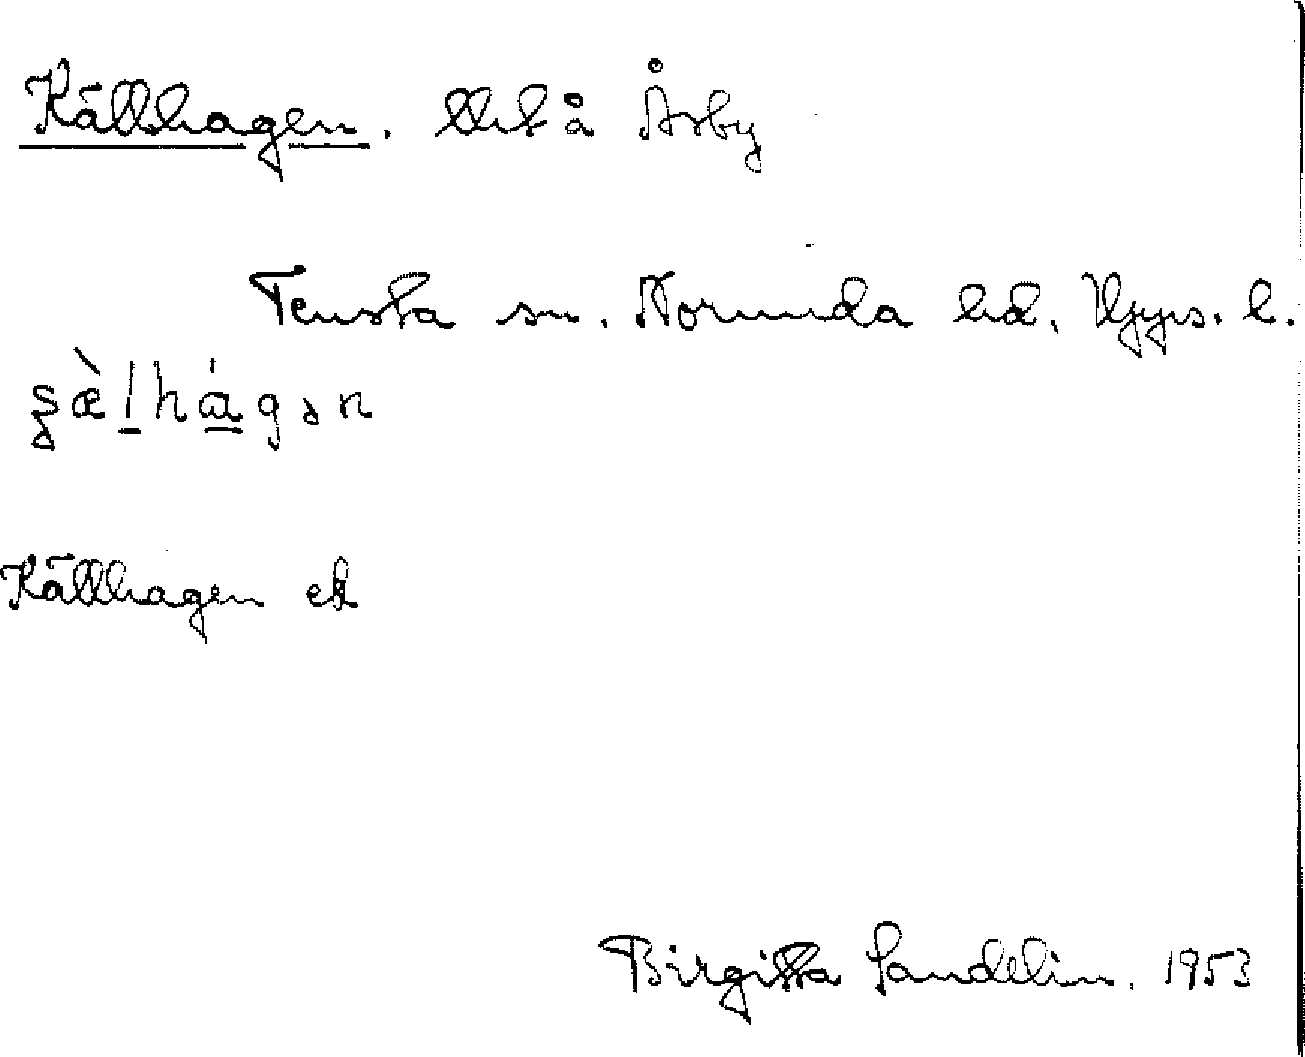 Källhagen. lht å Årby
Tensta sn. Norunda hd. Upps. l.
Källhagen ek
Birgitta Sandelin. 1953